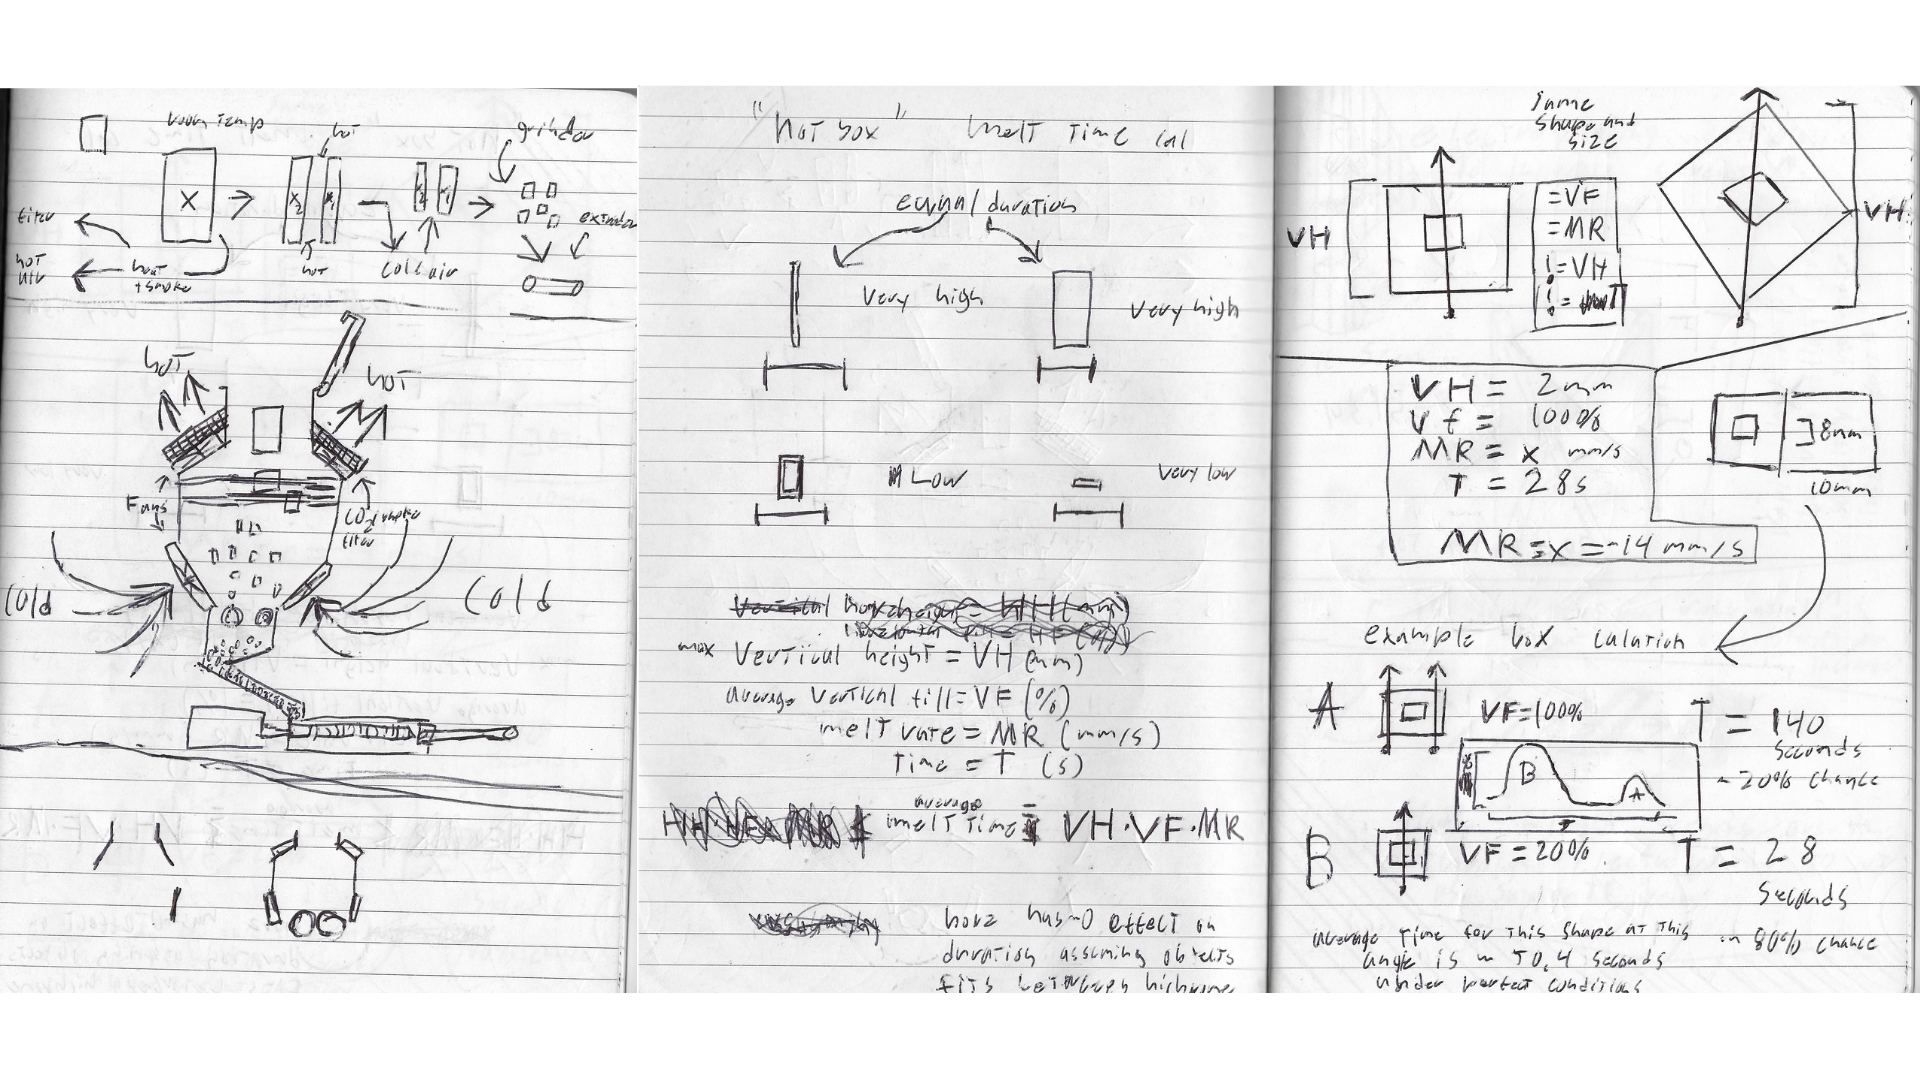 room temp
hot
grinder
X
X2
X1
X2
X1
filter
hot
air
heat
+ smoke
hot
cold air
extruder
hot
hot
Fans
CO2
filter
Cold
Cold
"Hot box" melt time cal
equal/duration
very high
very high
Low
very low
max Vertical height = VH (mm)
average vertical fill = VF (%)
melt rate = MR (mm/s)
Time = T (s)
average
melt time = VH·VF·MR
horz has 0 effect on
duration assuming objects
fits between
same
shape and
size
VH
=VF
=MR
!=VH
!=T
VH
VH = 2mm
Vf = 100%
MR = x mm/s
T = 28s
MR = x = ~14 mm/s
8mm
10mm
example box calution
A
VF=100%
T = 140
Seconds
~ 20% chance
B
A
T
B
VF = 20%
T = 28
Seconds
~ 80% chance
average time for this shape at this
angle is ~ 50,4 seconds
under perfect conditions